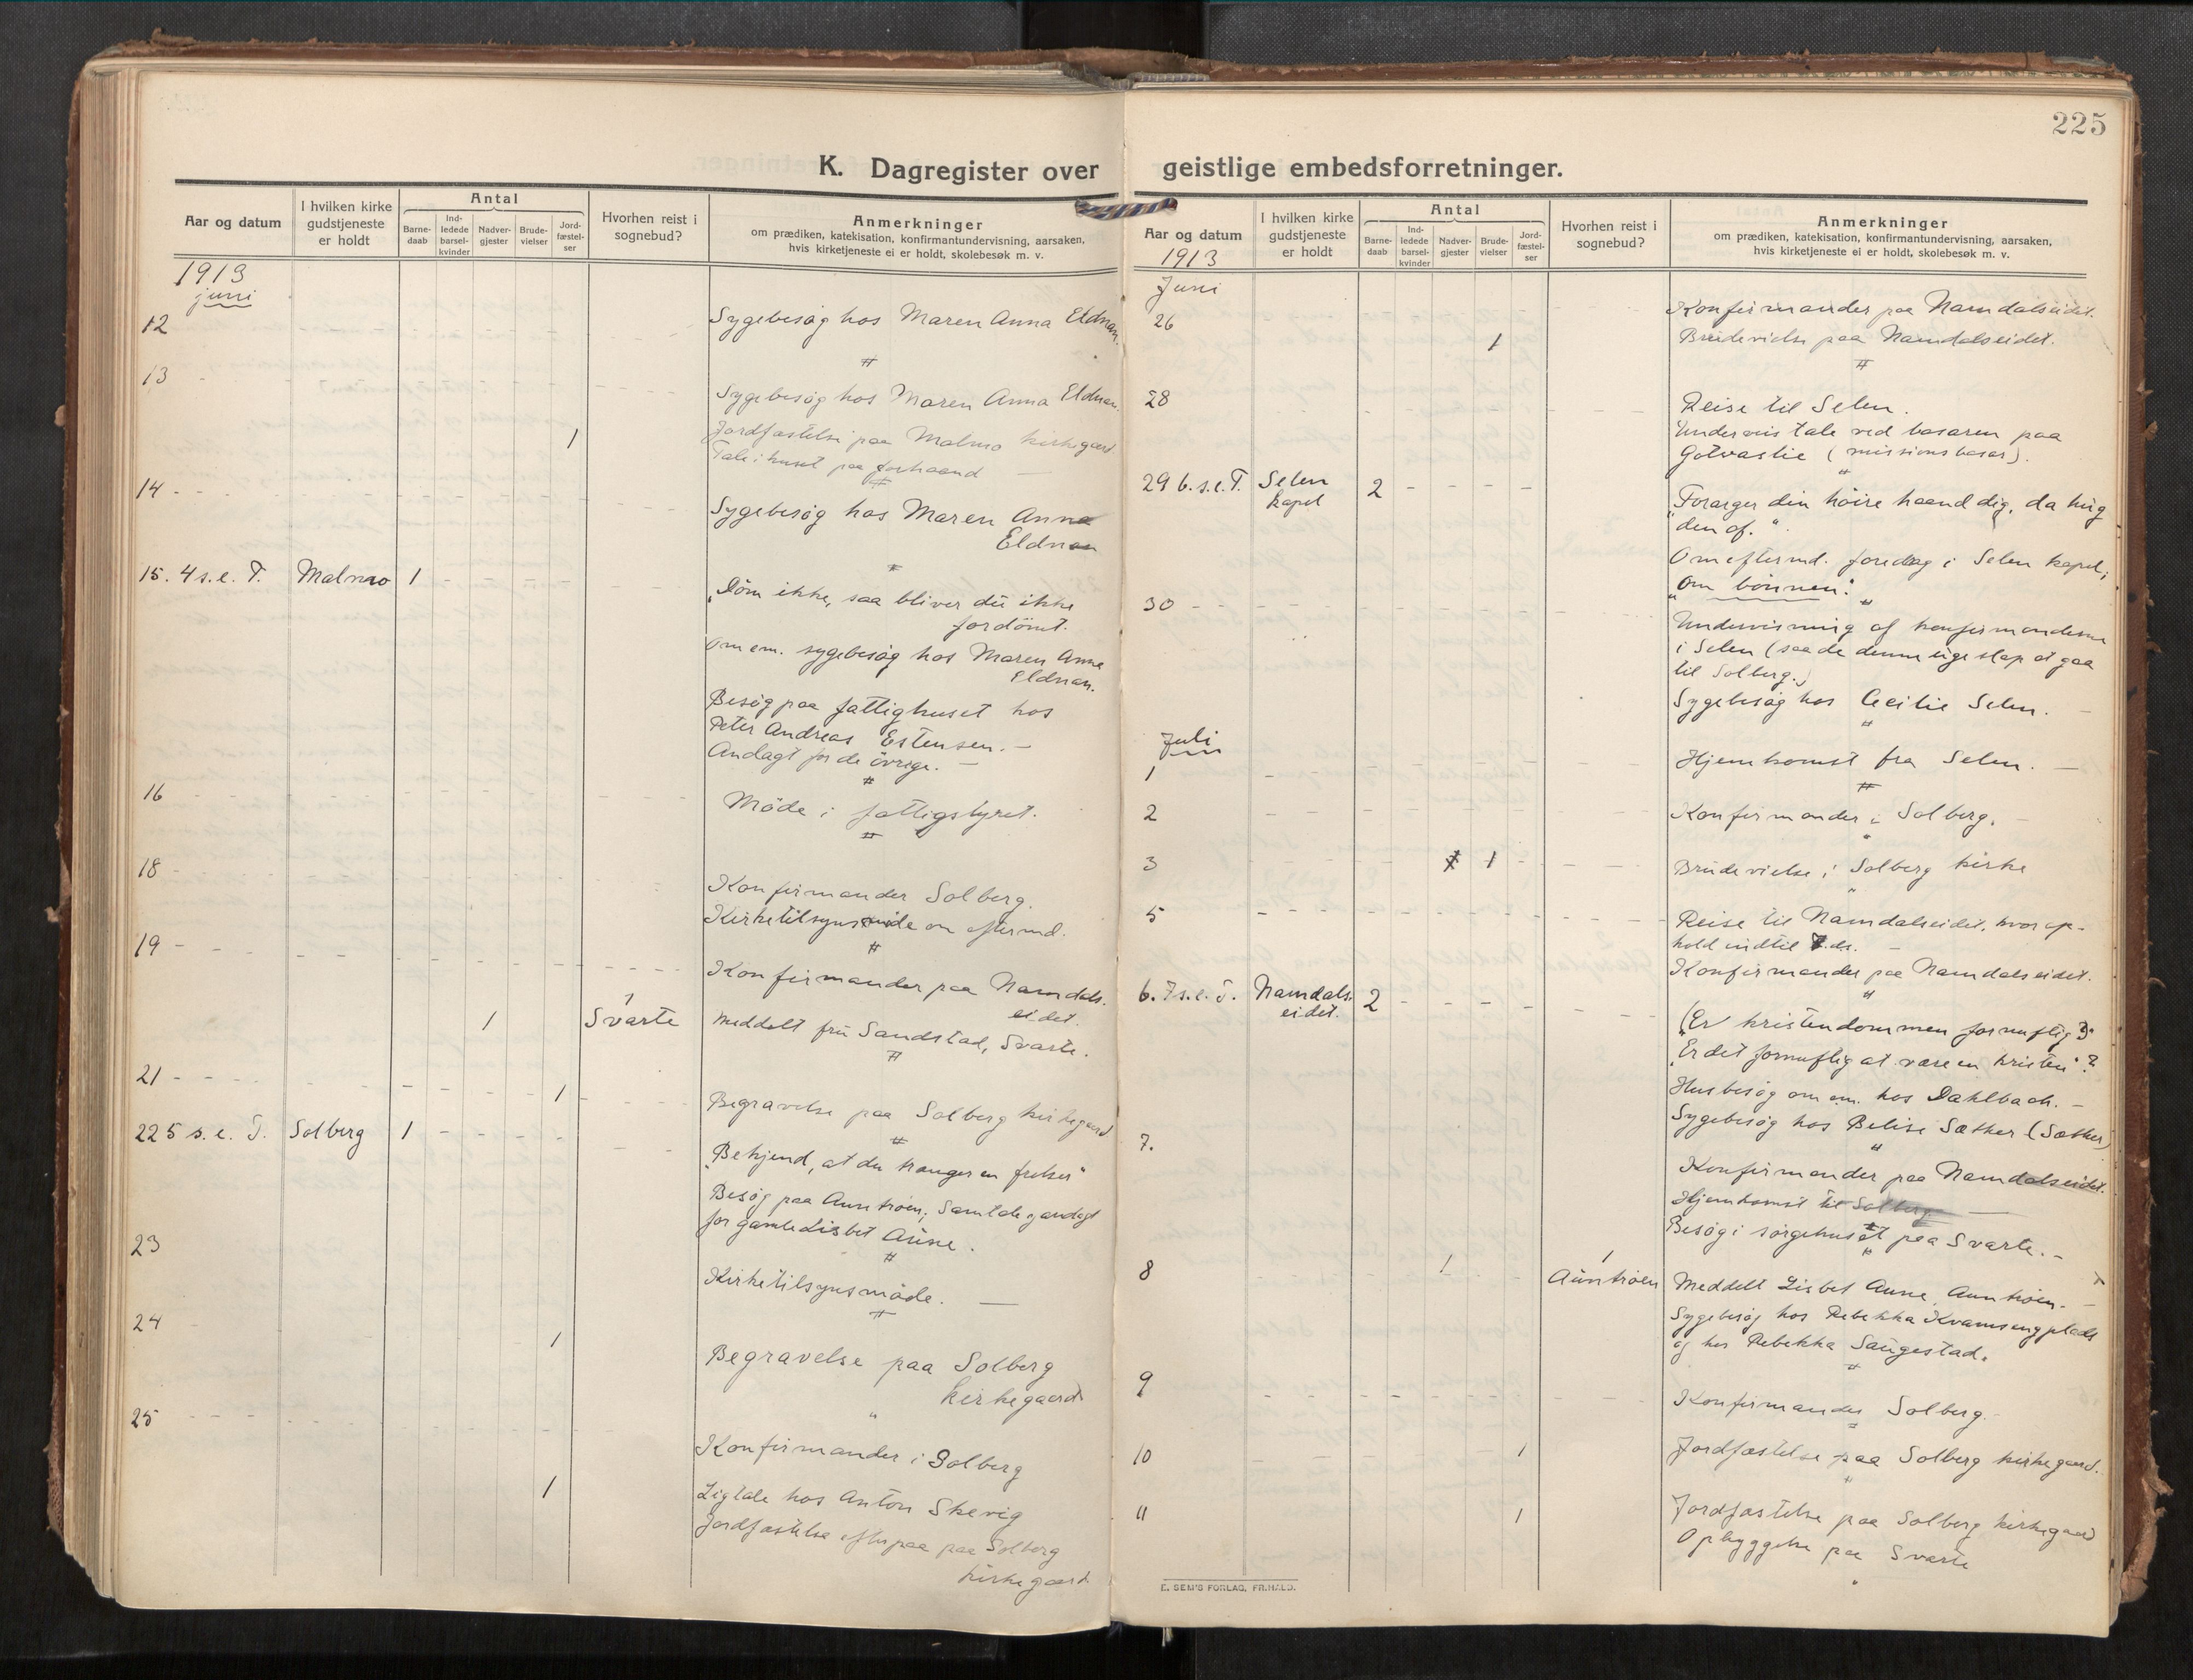 225
K. Dagregister over geistlige embedsforretninger.
Aar og datum
I hvilken kirke gudstjeneste er holdt
Antal
Barne-daab
Ind-ledede barsel-kvinder
Nadver-gjester
Brude-vielser
Jord-fæstel-ser
Hvorhen reist i sognebud?
Anmerkninger
om prædiken, katekisation, konfirmantundervisning, aarsaken,
hvis kirketjeneste ei er holdt, skolebesøk m. v.
1913
juni
12
Sygebesøg hos Maren Anna Eldnan.
13
Sygebesøg hos Maren Anna Eldnan.
1 Jordfæstelse paa Malmo kirkegaard.
Tale i huset paa forhaand
14
Sygebesøg hos Maren Anna
Eldnan
15. 4 s. e. T. Malmo 1
"Döm ikke, saa bliver du ikke
fordömt.
Om em. sygebesøg hos Maren Anna
Eldnan.
Besøg paa fattighuset hos
Peter Andreas Estensen. —
Andagt for de övrige. —
16
Möde i fattigstyret.
18
Konfirmander Solberg.
Kirketilsynsmöde om eftermd.
19
Konfirmander paa Namdals.
eidet.
1 1 Svarte Meddelt fru Sandstad, Svarte.
21
1 Begravelse paa Solberg kirkegaard
22 5 s. e. T. Solberg 1
"Bekjend, at du trænger en frelser"
Besøg paa Auntrøen; Samtale og andagt
for gamle Lisbet Aune.
23
Kirketilsynsmöde. —
24
1 Begravelse paa Solberg
kirkegaard
25
Konfirmander i Solberg
1 Ligtale hos Anton Skevig
Jordfæstelse efter paa paa Solberg
kirkegaard
Aar og datum
I hvilken kirke gudstjeneste er holdt
Antal
Barne-daab
Ind-ledede barsel-kvinder
Nadver-gjester
Brude-vielser
Jord-fæstel-ser
Hvorhen reist i sognebud?
Anmerkninger
om prædiken, katekisation, konfirmantundervisning, aarsaken,
hvis kirketjeneste ei er holdt, skolebesøk m. v.
1913
Juni
26
Konfirmander paa Namdalseidet.
1 Brudevielse paa Namdalseidet.
28
Reise til Selen.
Underveis tale ved basaren paa
Gotvaslie (missionsbasar).
29 6. s. e. T. Selen kapel 2
"Forarger din höire haand dig, da hug
den af."
Om eftermd. foredrag i Selen kapel;
"Om bönnen."
30
Undervisning af konfirmanderne
i Selen (saa de denne uge slap at gaa
til Solberg.)
Sygebesøg hos Cecilie Selen. —
Juli
1
Hjemkomst fra Selen. —
2
Konfirmander i Solberg. —
3 1
Brudevielse i Solberg kirke
5
Reise til Namdalseidet, hvor op-
hold indtil 7. ds. —
Konfirmander paa Namdalseidet.
6. 7 s. e. T. Namdals. eidet. 2
(Er kristendommen fornuftig?)
"Er det fornuftig at være en kristen"?
Husbesøg om em. hos Dahlbach. —
Sygebesøg hos Belise Sæther (Sæther)
7.
Konfirmander paa Namdalseidet.
Hjemkomst til Solberg. —
Besøg i sørgehuset paa Svarte. —
8 1 1 Auntrøen
Meddelt Lisbet Aune, Auntrøen. —
Sygebesøg hos Rebekka Kvamsengplads
og hos Rebekka Saugestad.
9
Konfirmander Solberg.
10 1
Jordfæstelse paa Solberg kirkegaard.
11 1
Jordfæstelse paa Solberg kirkegaard
Opbyggelse paa Svarte
E. SEM'S FORLAG, FR.HALD.